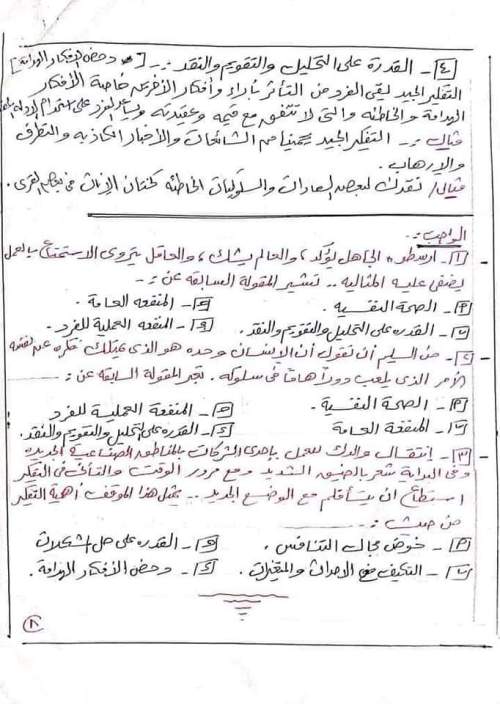 [٤]- القدرة على التحليل والتقويم والنقد :- [ودحض الأفكار الهدامة]
التفكير الجيد يقى الفرد من التأثر بآراء وأفكار الآخرين خاصة الأفكار
الهدامة والخاطئه والتى لا تتفق مع قيمه وعقيدته ويساعد الفرد على
مثال :- التفكير الجيد يحمينا من الشائعات والأخبار الكاذبه والتطرف
والإرهاب.
مثال/ نقدك لبعض العادات والسلوكيات الخاطئه كختان الإناث فى بعض القرى.
الواجب :-
[١]- أرسطو " الجاهل يؤكد، والعالم يشك، والعاقل يتروى الاستمتاع بالعمل
يضفى عليه المثاليه .. تشير المقولة السابقه عن :-
[أ]- الصحة النفسيه. [ج]- المنفعه العامة.
[ب]- القدره على التحليل والتقويم والنقد. [د]- المنفعه العملية للفرد.
[٢]- من السليم أن نقول أن الإنسان وحده هو الذى يمتلك فكره عن نفسه
الأمر الذى يلعب دوراً هاماً فى سلوكه. تعبر المقولة السابقه عن :-
[أ]- الصحة النفسية. [ج]- المنفعة العملية للفرد
[ب]- المنفعة العامة [د]- القدره على التحليل والتقويم والنقد.
[٣]- إنتقال والدك للعمل بإحدى الشركات بالمناطق الصناعية الجديده
وفى البداية شعر بالضيق الشديد ومع مرور الوقت والتأنى فى التفكير
استطاع ان يتأقلم مع الوضع الجديد .. يمثل هذا الموقف أهمية التفكير
من حيث :-
[أ]- خوض مجال التنافس. [ج]- القدره على حل المشكلات
[ب]- التكيف مع الاحداث والمتغيرات. [د]- ودحض الأفكار الهدامة.
٨